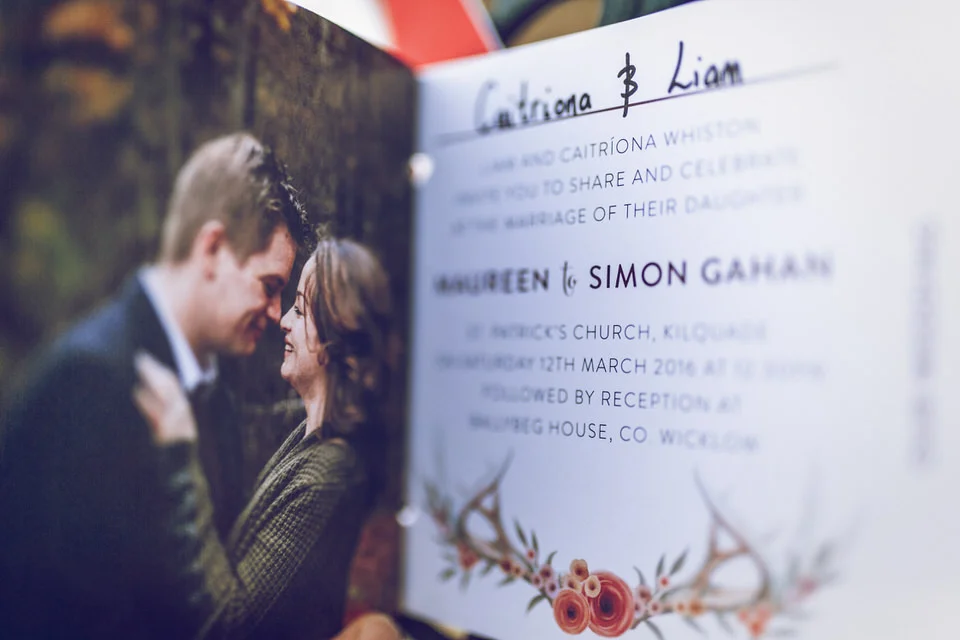 Caitriona & Liam
LIAM AND CAITRÍONA WHISTON
INVITE YOU TO SHARE AND CELEBRATE
IN THE MARRIAGE OF THEIR DAUGHTER
MAUREEN to SIMON GAHAN
ST. PATRICK'S CHURCH, KILQUADE
ON SATURDAY 12TH MARCH 2016 AT
FOLLOWED BY RECEPTION AT
BALLYBEG HOUSE, CO. WICKLOW